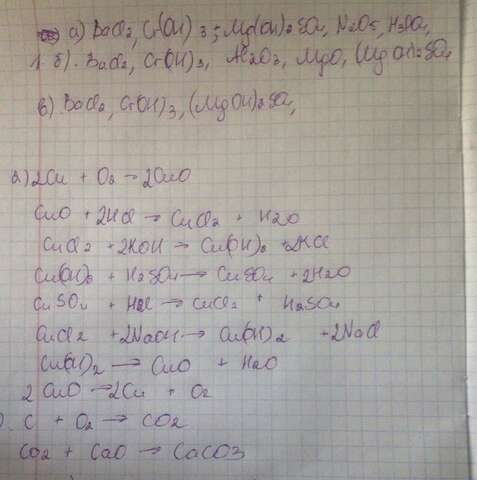 а) BaCl2, Cr(OH)3, Mg(OH)2SO4, N2O5, H3PO4,
1. б). BaCl2, Cr(OH)3, Al2O3, MgO, (MgOH)2SO4
в) BaCl2, Cr(OH)3, (MgOH)2SO4,
2) 2Cu + O2 → 2CuO
CuO + 2HCl → CuCl2 + H2O
CuCl2 + 2KOH → Cu(OH)2 + 2KCl
Cu(OH)2 + H2SO4 → CuSO4 + 2H2O
CuSO4 + HCl → CuCl2 + H2SO4
CuCl2 + 2NaOH → Cu(OH)2 + 2NaCl
Cu(OH)2 → CuO + H2O
2CuO → 2Cu + O2
C + O2 → CO2
CO2 + CaO → CaCO3